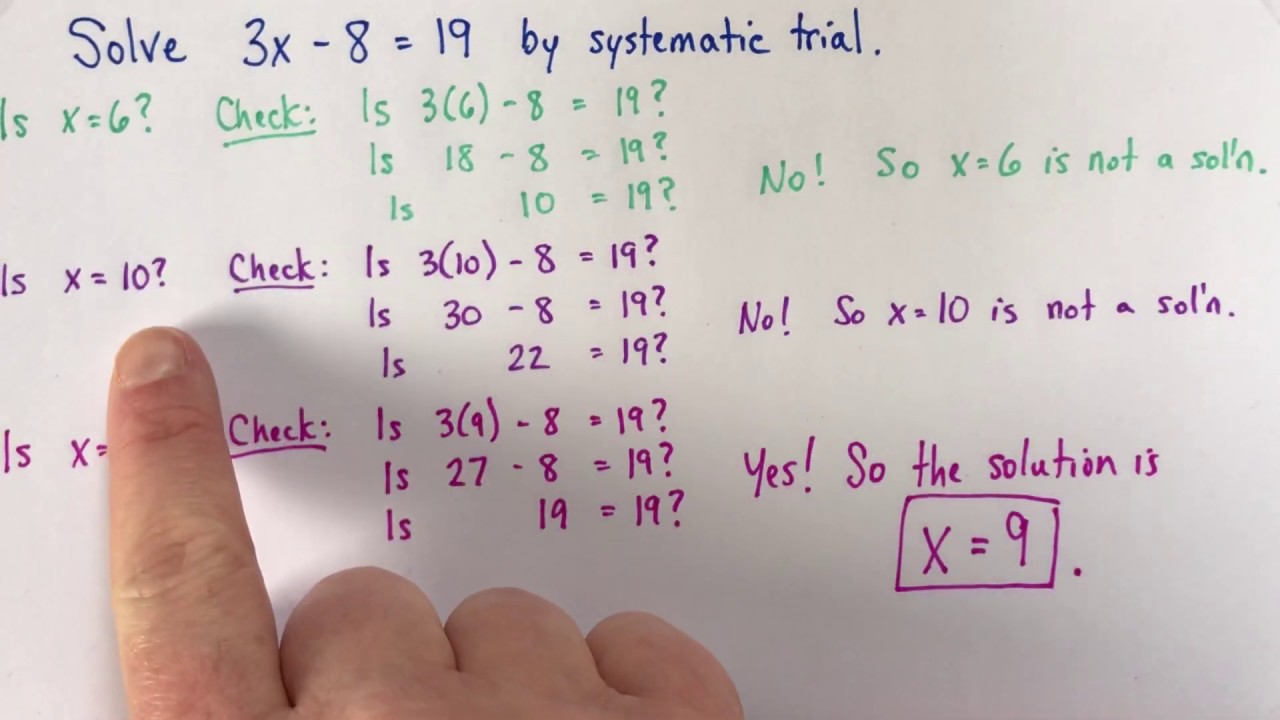 Solve 3x - 8 = 19 by systematic trial.
Is x = 6? Check: Is 3(6) - 8 = 19?
Is 18 - 8 = 19?
No! So x = 6 is not a sol'n.
Is 10 = 19?
Is x = 10? Check: Is 3(10) - 8 = 19?
Is 30 - 8 = 19?
No! So x = 10 is not a sol'n.
Is 22 = 19?
Is x = Check: Is 3(9) - 8 = 19?
Is 27 - 8 = 19?
Yes! So the solution is
Is 19 = 19?
x = 9.